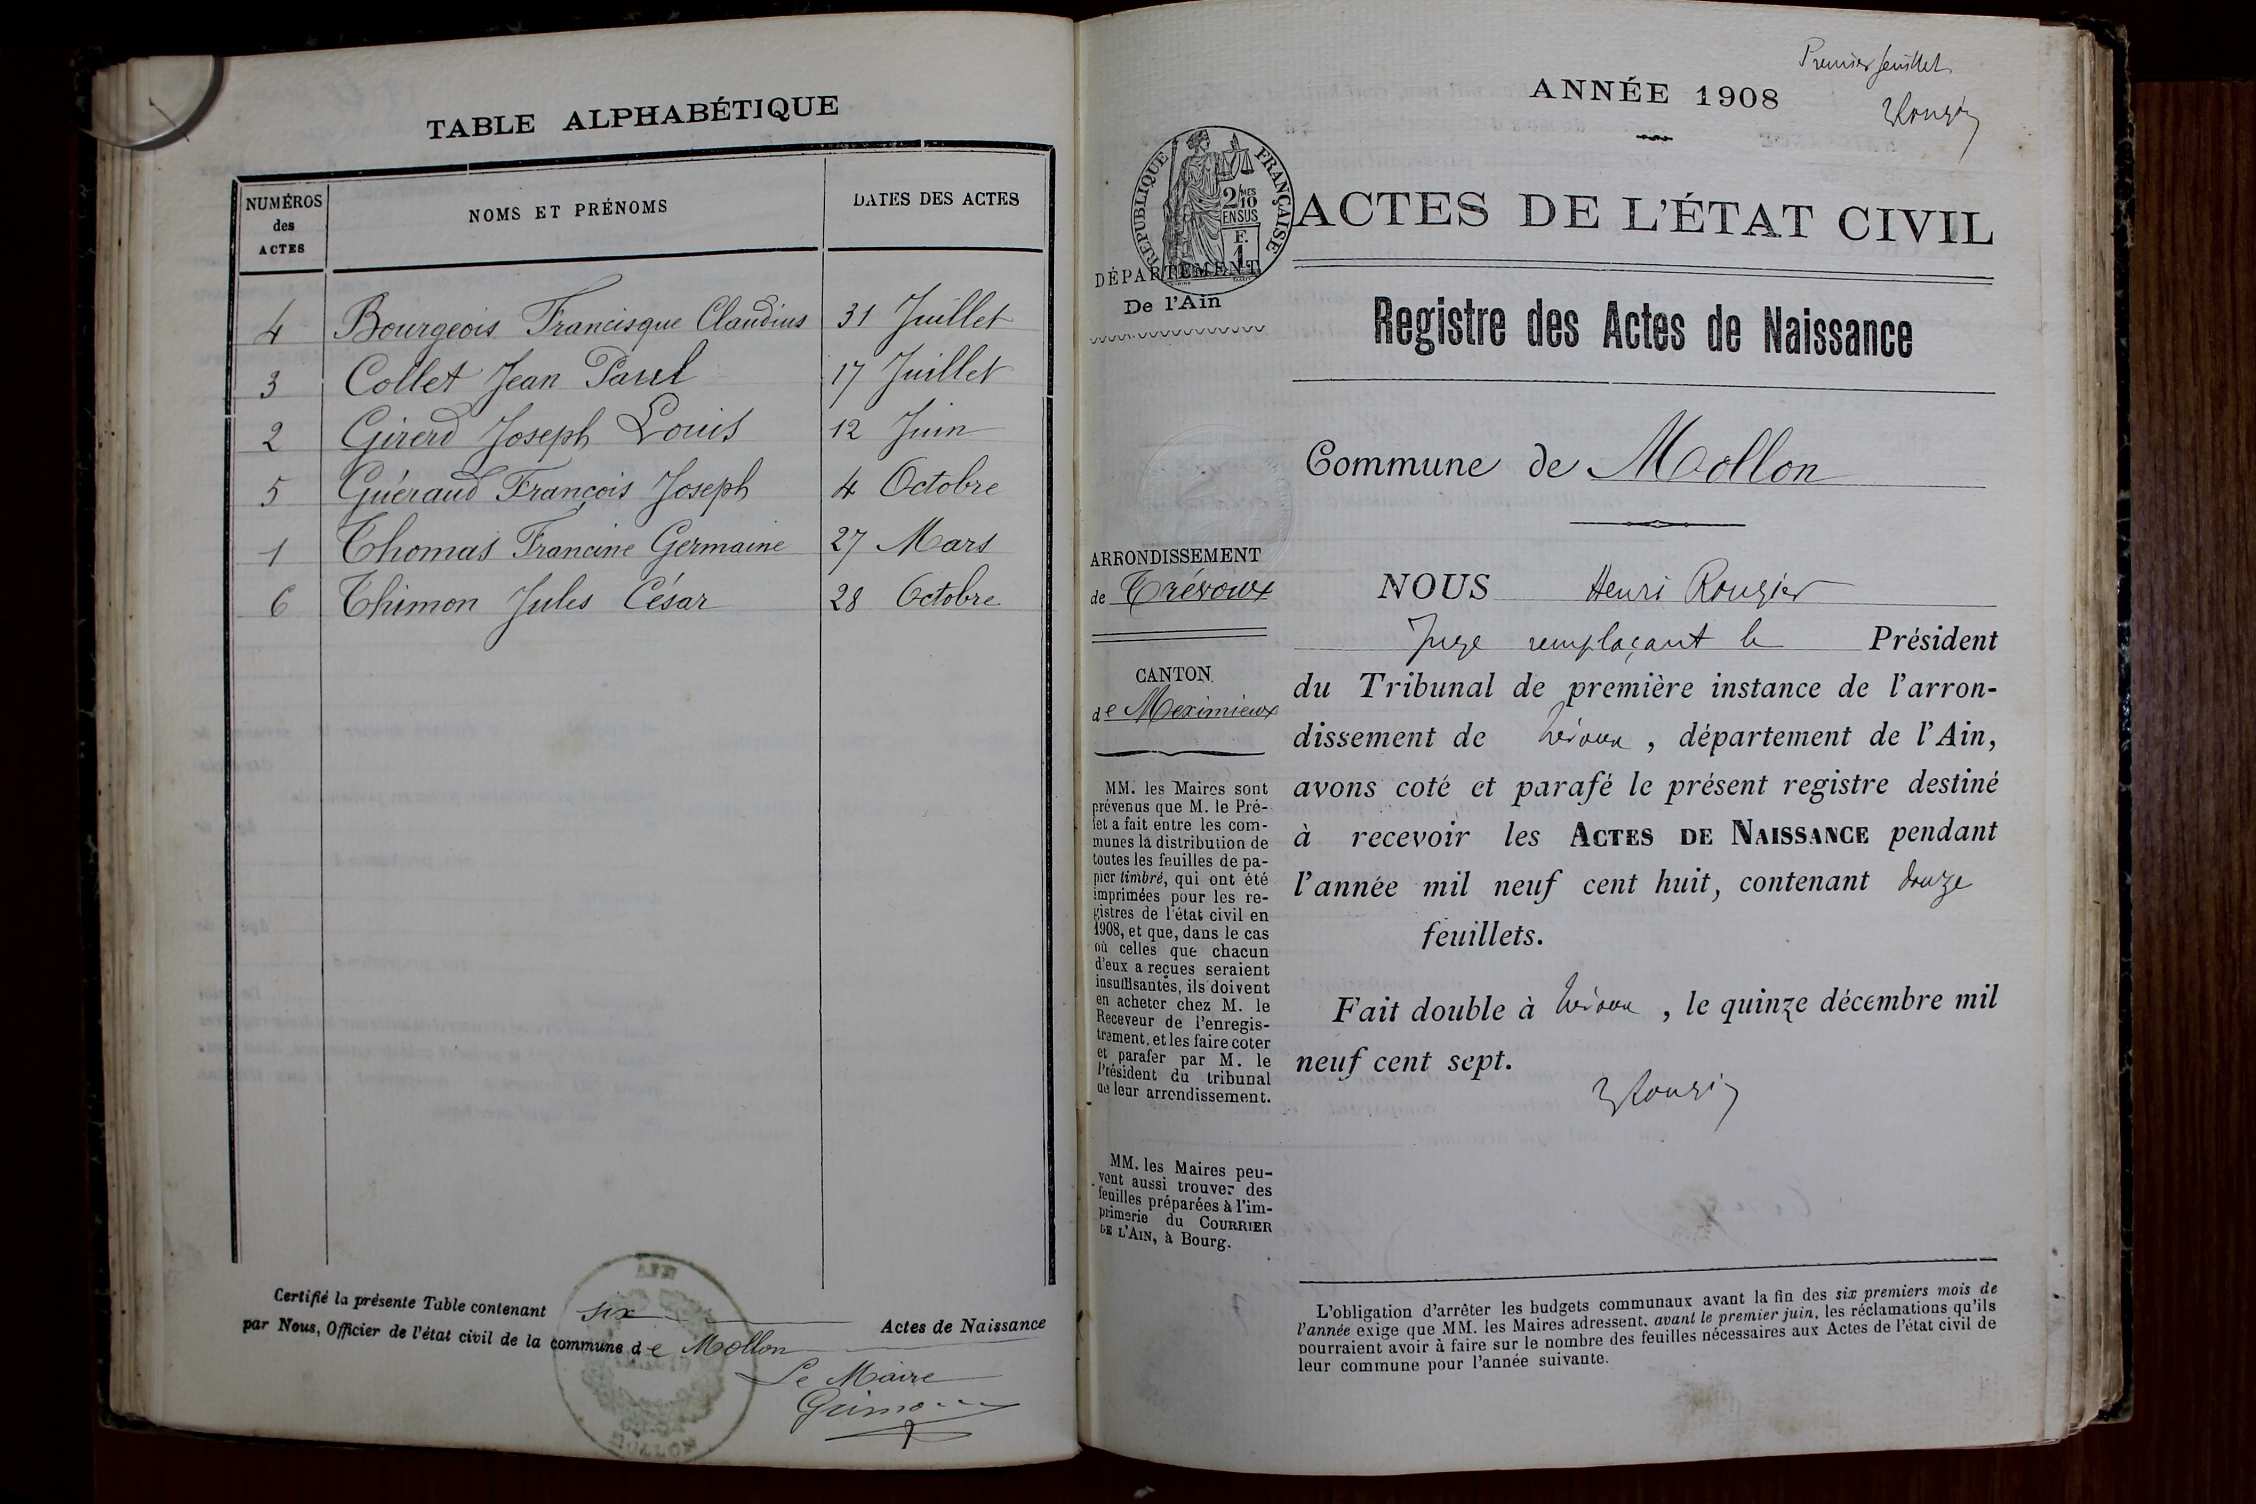 TABLE ALPHABÉTIQUE
NUMÉROS des ACTES
NOMS ET PRÉNOMS
DATES DES ACTES
4 Bourgeois Francisque Claudius 31 Juillet
3 Collet Jean Paul 17 Juillet
2 Girerd Joseph Louis 12 Juin
5 Guéraud François Joseph 4 Octobre
1 Thomas Francine Germaine 27 Mars
6 Thimon Jules César 28 Octobre
Certifié la présente Table contenant six Actes de Naissance
par Nous, Officier de l'état civil de la commune de Mollon
Le Maire
AIN
MOLLON
Premier feuillet
ANNÉE 1908
RÉPUBLIQUE FRANÇAISE
2/10 MES
EN SUS
F.
1
ACTES DE L'ÉTAT CIVIL
DÉPARTEMENT
De l'Ain
Registre des Actes de Naissance
Commune de Mollon
ARRONDISSEMENT
de Trévoux
CANTON
de Meximieux
MM. les Maires sont
prévenus que M. le Pré-
fet a fait entre les com-
munes la distribution de
toutes les feuilles de pa-
pier timbré, qui ont été
imprimées pour les re-
gistres de l'état civil en
1908, et que, dans le cas
où celles que chacun
d'eux a reçues seraient
insuffisantes, ils doivent
en acheter chez M. le
Receveur de l'enregis-
trement, et les faire coter
et parafer par M. le
Président du tribunal
de leur arrondissement.
MM. les Maires peu-
vent aussi trouver des
feuilles préparées à l'im-
primerie du COURRIER
DE L'AIN, à Bourg.
NOUS Henri Rougier
Juge remplaçant le Président
du Tribunal de première instance de l'arron-
dissement de Trévoux, département de l'Ain,
avons coté et parafé le présent registre destiné
à recevoir les ACTES DE NAISSANCE pendant
l'année mil neuf cent huit, contenant douze
feuillets.
Fait double à Trévoux, le quinze décembre mil
neuf cent sept.
L'obligation d'arrêter les budgets communaux avant la fin des six premiers mois de
l'année exige que MM. les Maires adressent, avant le premier juin, les réclamations qu'ils
pourraient avoir à faire sur le nombre des feuilles nécessaires aux Actes de l'état civil de
leur commune pour l'année suivante.